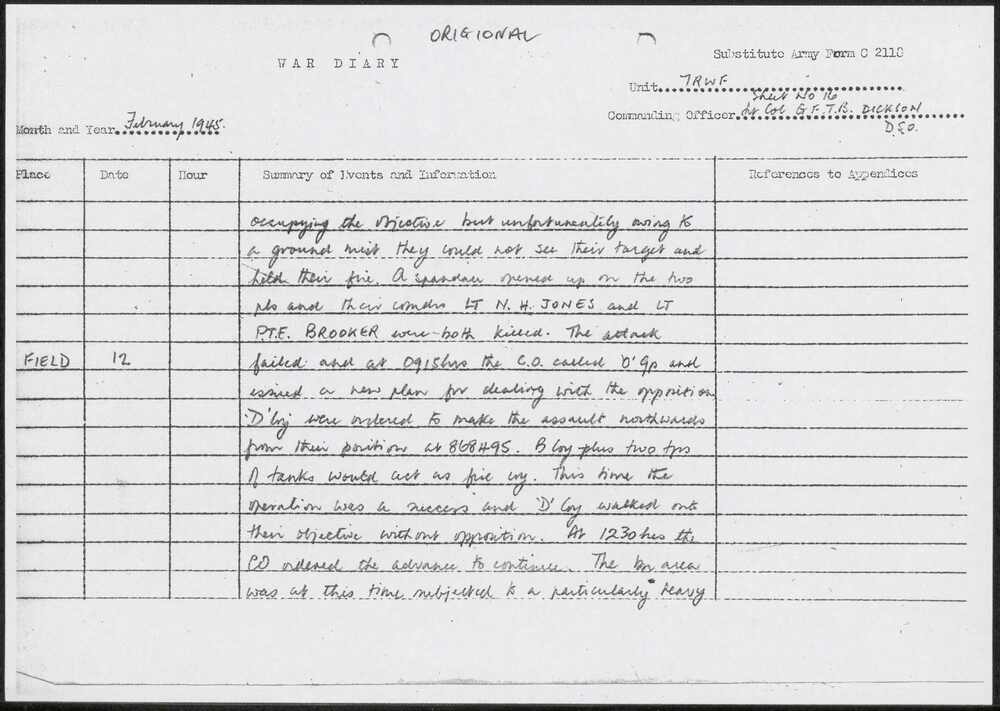 ORIGIONAL
WAR DIARY
Substitute Army Form C 2118
Unit 7RWF
Sheet No 16
Commanding Officer Lt Col G.F.T.B. DICKSON
D.S.O.
Month and Year February 1945.
Place Date Hour Summary of Events and Information References to Appendices
occupying the objective but unfortunatily owing to
a ground mist they could not see their target and
held their fire. A spandau opened up on the two
pls and their comdrs LT N. H. JONES and LT
P.T.E. BROOKER were both killed. The attack
FIELD 12 failed and at 0915hrs the C.O. called 'O' Gp and
issued a new plan for dealing with the opposition
'D' Coy were ordered to make the assault northwards
from their position at 868495. B Coy plus two tps
of tanks would act as fire coy. This time the
operation was a success and 'D' Coy walked onto
their objective without opposition. At 1230hrs the
CO ordered the advance to continue. The bn area
was at this time subjected to a particularly heavy